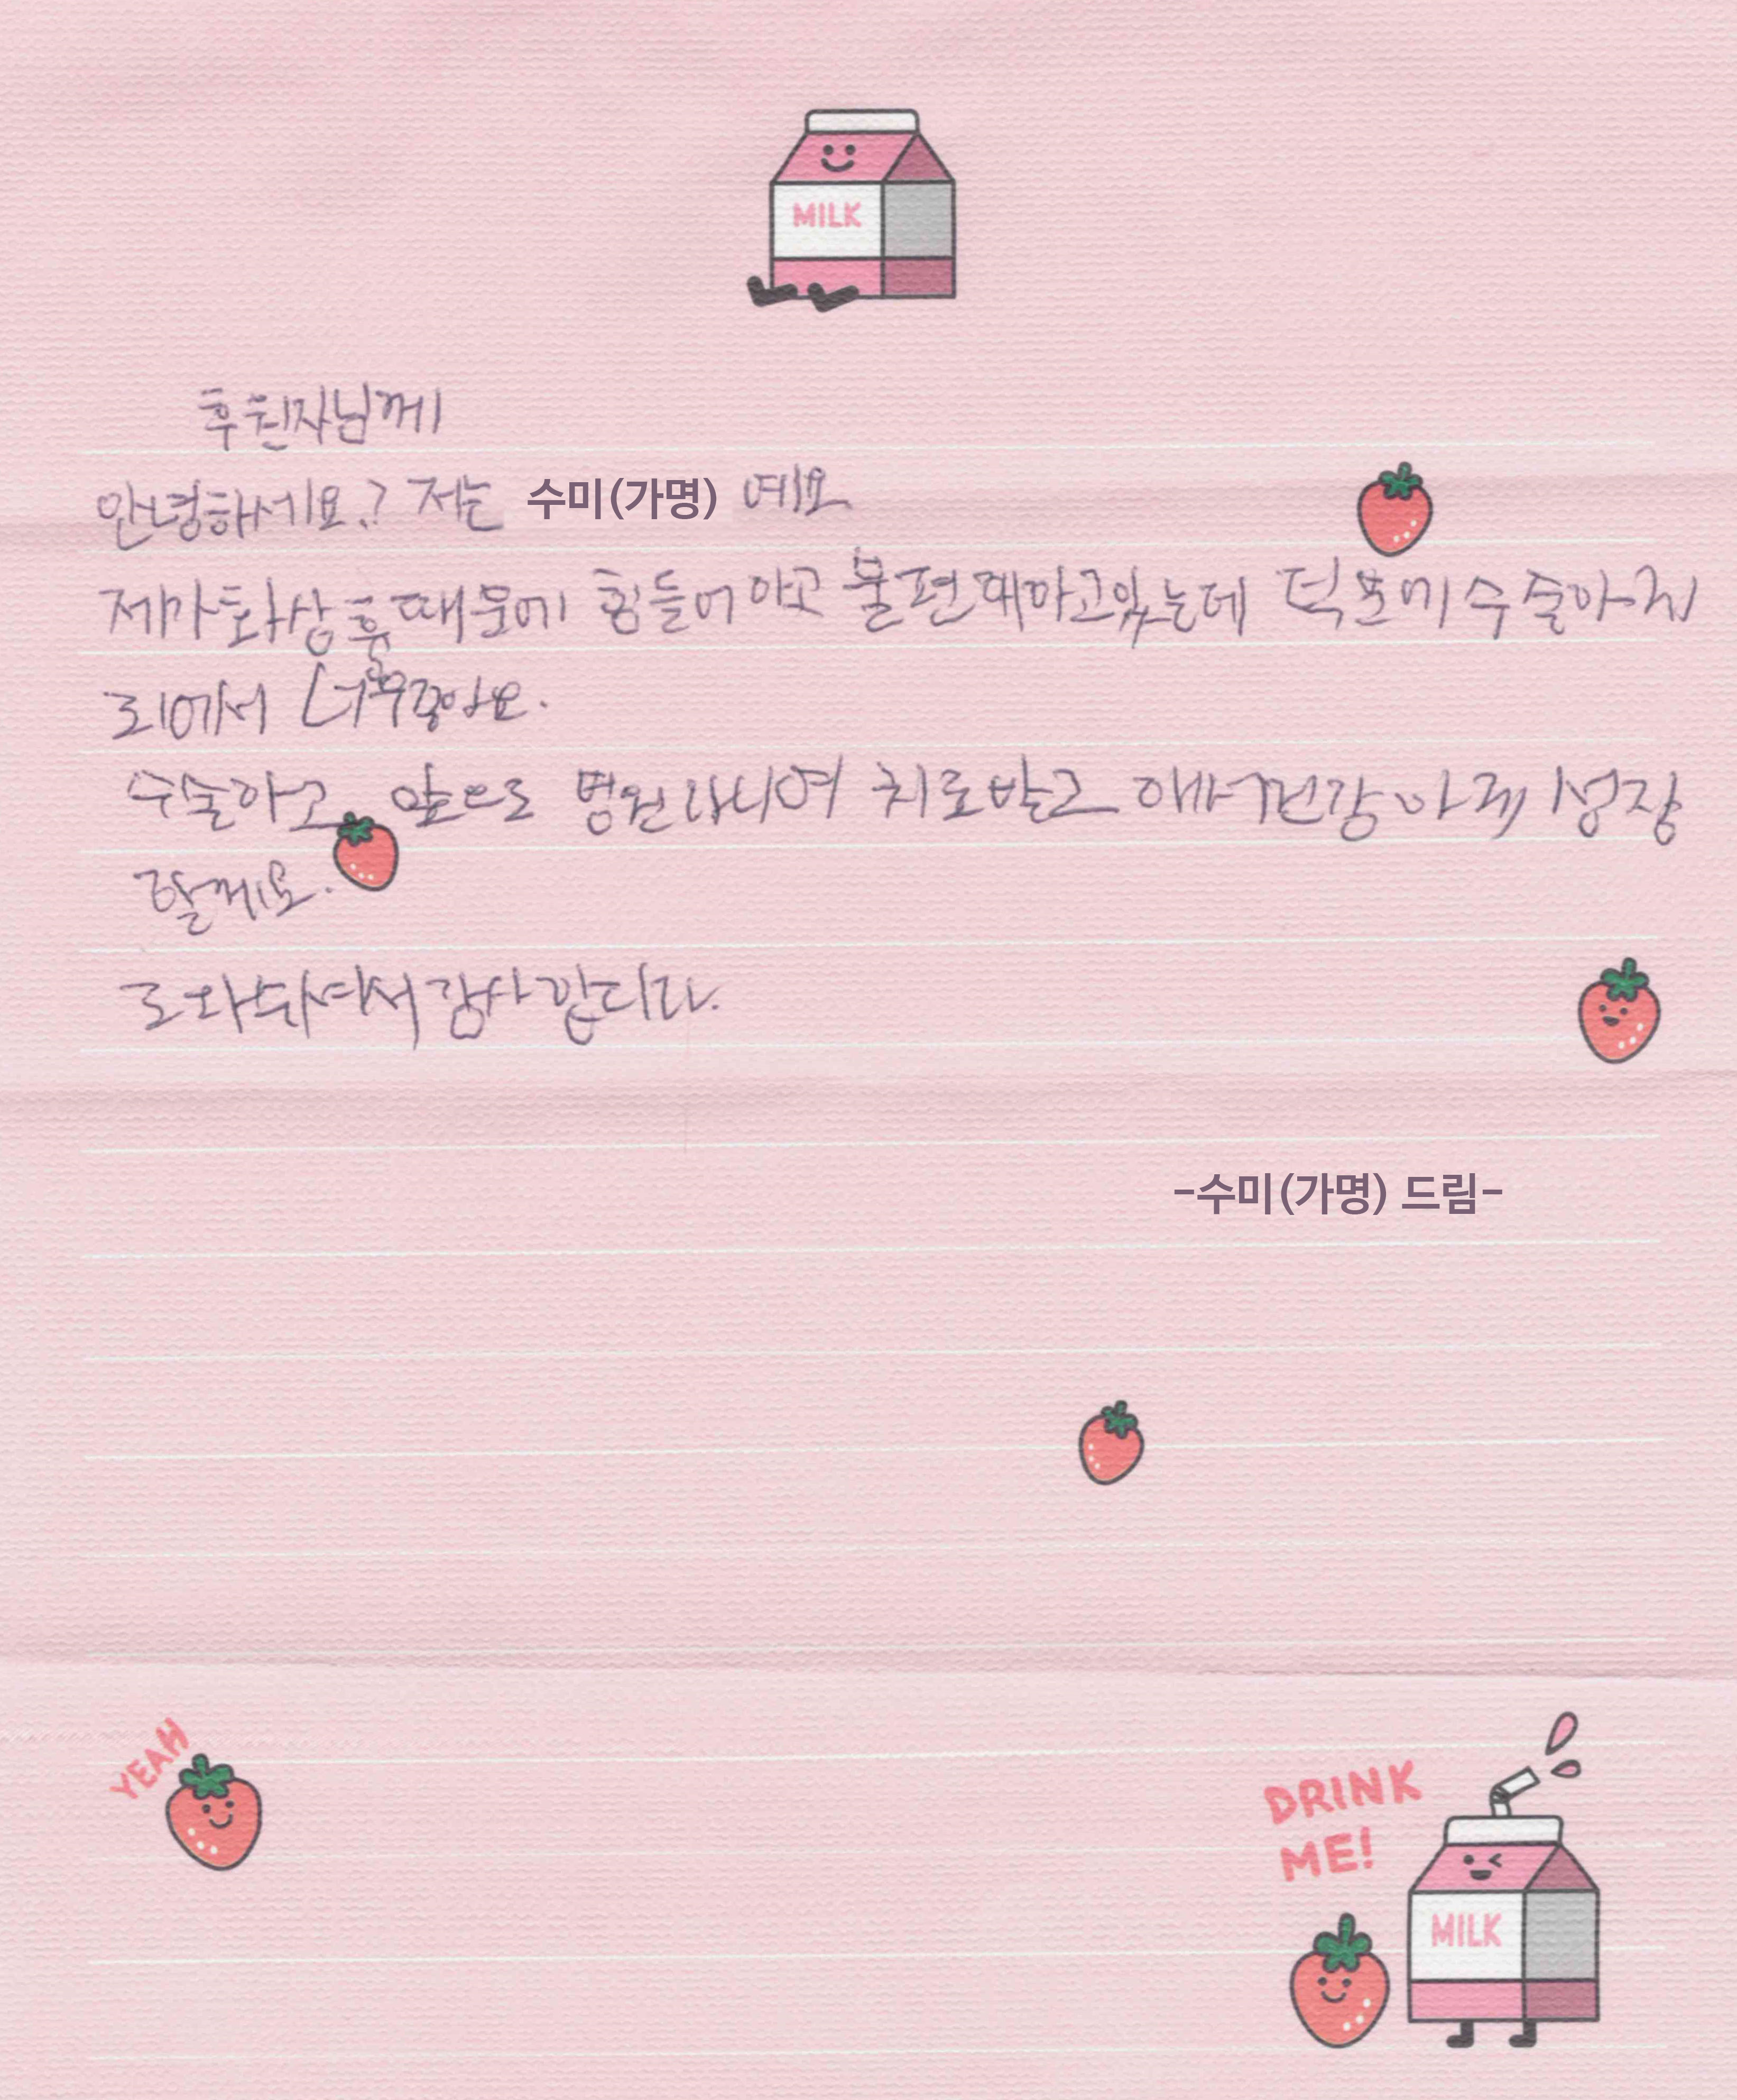 MILK
후원자님께
안녕하세요.? 저는 수미(가명) 예요
제가 화상후 때문에 힘들어 아고 불편해하고있는데 덕분에 수술아게
되에서 너무좋아요.
수술아고 앞으로 병원다니여 치료받고 건강아게 성장
할께요.
도와주셔서 감사합니다.
-수미(가명) 드림-
YEAH
DRINK
ME!
MILK